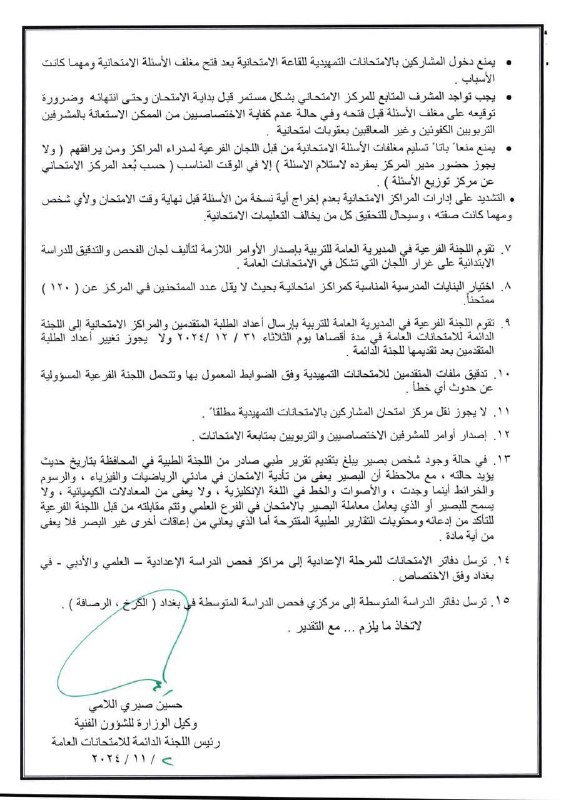 • يمنع دخول المشاركين بالامتحانات التمهيدية للقاعة الامتحانية بعد فتح مغلف الأسئلة الامتحانية ومهما كانت
الأسباب .
• يجب تواجد المشرف المتابع للمركز الامتحاني بشكل مستمر قبل بداية الامتحان وحتى انتهائه وضرورة
توقيعه على مغلف الأسئلة قبل فتحه وفي حالة عدم كفاية الاختصاصيين من الممكن الاستعانة بالمشرفين
التربويين الكفوئين وغير المعاقبين بعقوبات امتحانية .
• يمنع منعاً باتاً تسليم مغلفات الأسئلة الامتحانية من قبل اللجان الفرعية لمدراء المراكز ومن يرافقهم ( ولا
يجوز حضور مدير المركز بمفرده لاستلام الاسئلة ) إلا في الوقت المناسب ( حسب بُعد المركز الامتحاني
عن مركز توزيع الأسئلة ) .
• التشديد على إدارات المراكز الامتحانية بعدم إخراج أية نسخة من الأسئلة قبل نهاية وقت الامتحان ولأي شخص
ومهما كانت صفته ، وسيحال للتحقيق كل من يخالف التعليمات الامتحانية.
٧. تقوم اللجنة الفرعية في المديرية العامة للتربية بإصدار الأوامر اللازمة لتأليف لجان الفحص والتدقيق للدراسة
الابتدائية على غرار اللجان التي تشكل في الامتحانات العامة .
٨. اختيار البنايات المدرسية المناسبة كمراكز امتحانية بحيث لا يقل عدد الممتحنين في المركز عن ( ١٢٠ )
ممتحناً.
٩. تقوم اللجنة الفرعية في المديرية العامة للتربية بإرسال أعداد الطلبة المتقدمين والمراكز الامتحانية إلى اللجنة
الدائمة للامتحانات العامة في مدة أقصاها يوم الثلاثاء ٣١ / ١٢ /٢٠٢٤ ولا يجوز تغيير أعداد الطلبة
المتقدمين بعد تقديمها للجنة الدائمة .
١٠. تدقيق ملفات المتقدمين للامتحانات التمهيدية وفق الضوابط المعمول بها وتتحمل اللجنة الفرعية المسؤولية
عن حدوث أي خطأ .
١١. لا يجوز نقل مركز امتحان المشاركين بالامتحانات التمهيدية مطلقاً .
١٢. إصدار أوامر للمشرفين الاختصاصيين والتربويين بمتابعة الامتحانات .
١٣. في حالة وجود شخص بصير يبلغ بتقديم تقرير طبي صادر من اللجنة الطبية في المحافظة بتاريخ حديث
يؤيد حالته ، مع ملاحظة أن البصير يعفى من تأدية الامتحان في مادتي الرياضيات والفيزياء ، والرسوم
والخرائط أينما وجدت ، والأصوات والخط في اللغة الإنكليزية ، ولا يعفى من المعادلات الكيميائية ، ولا
يسمح للبصير أو الذي يعامل معاملة البصير بالامتحان في الفرع العلمي وتتم مقابلته من قبل اللجنة الفرعية
للتأكد من إدعائه ومحتويات التقارير الطبية المقترحة أما الذي يعاني من إعاقات أخرى غير البصر فلا يعفى
من أية مادة .
١٤. ترسل دفاتر الامتحانات للمرحلة الإعدادية إلى مراكز فحص الدراسة الإعدادية – العلمي والأدبي - في
بغداد وفق الاختصاص .
١٥. ترسل دفاتر الدراسة المتوسطة إلى مركزي فحص الدراسة المتوسطة في بغداد ( الكرخ ، الرصافة ) .
لاتخاذ ما يلزم ... مع التقدير .
حسين صبري اللامي
وكيل الوزارة للشؤون الفنية
رئيس اللجنة الدائمة للامتحانات العامة
/ ١١ / ٢٠٢٤